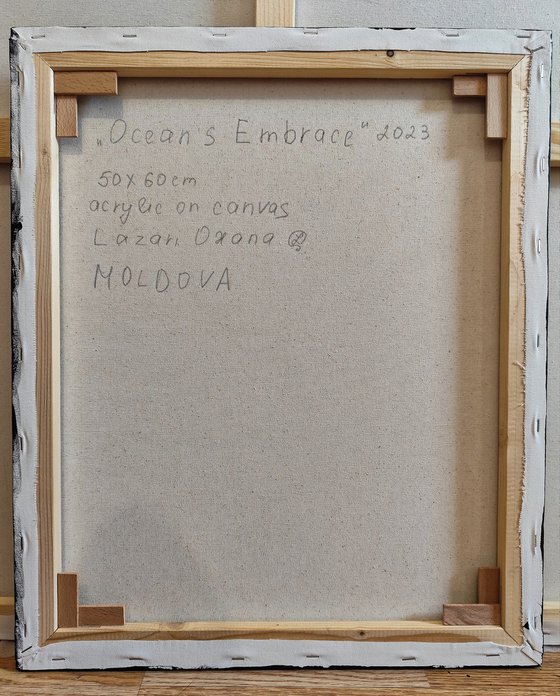 „Ocean's Embrace“ 2023
50x60cm
acrylic on canvas
Lazari Oxana
MOLDOVA